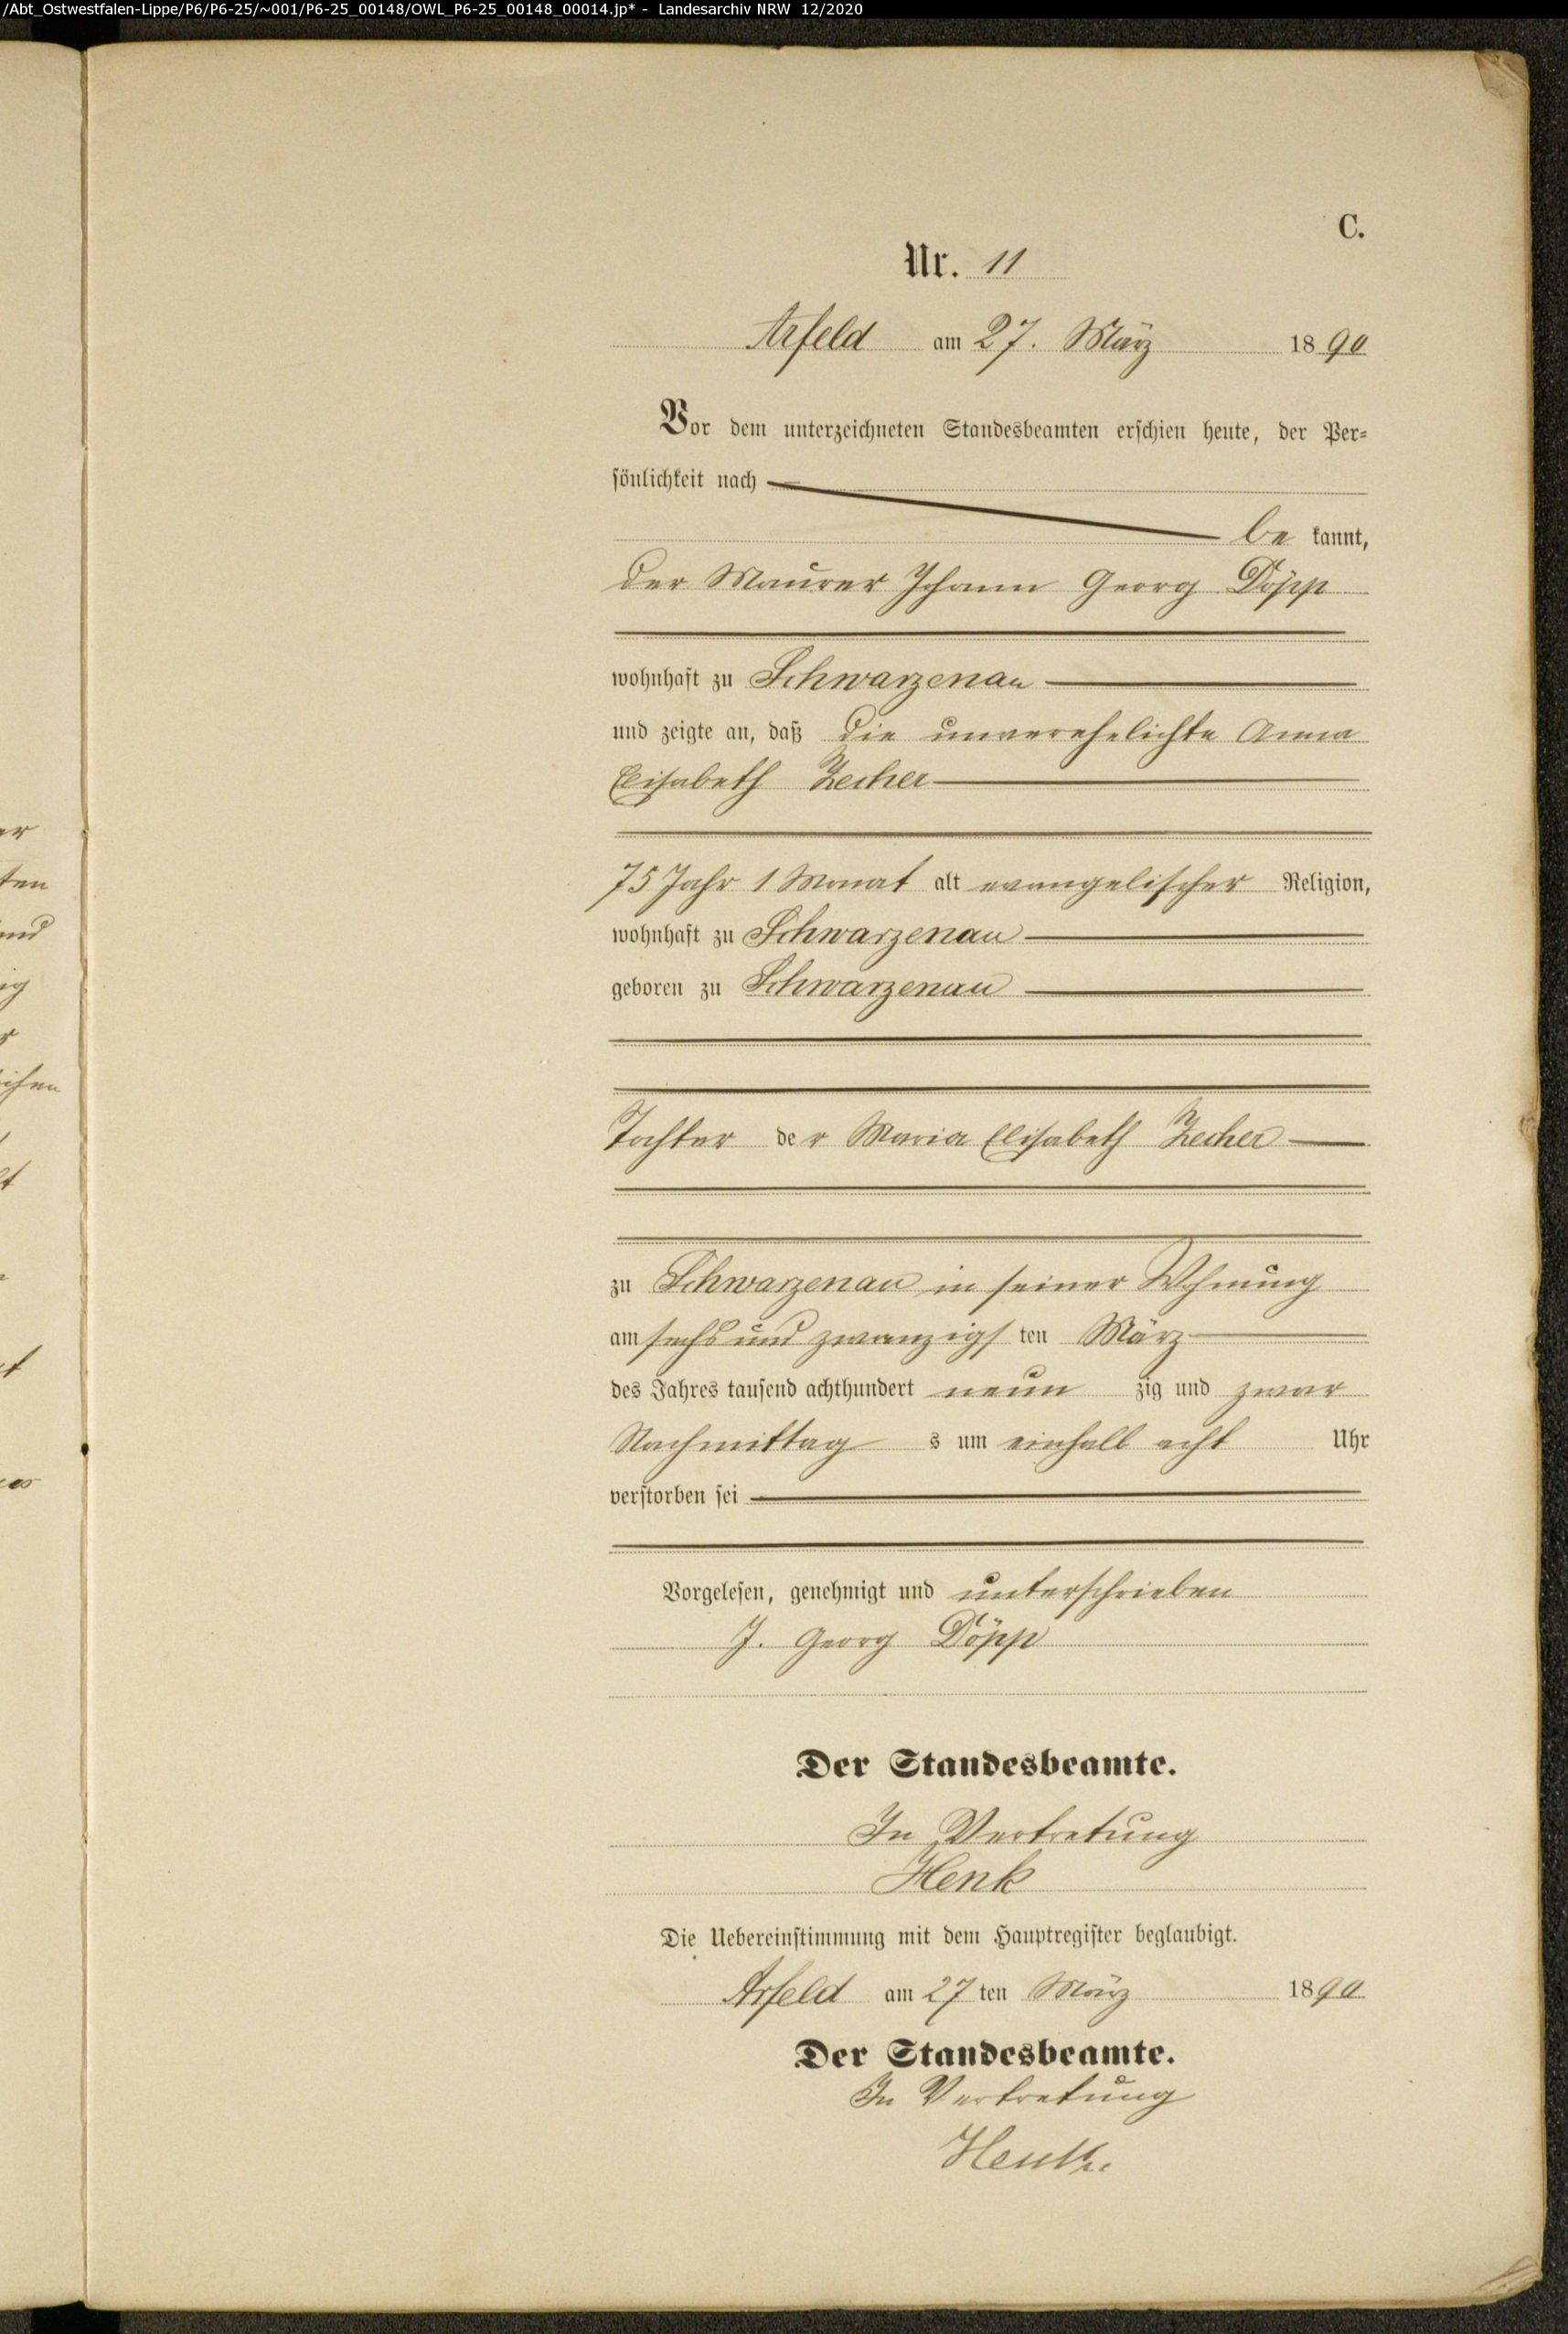 /Abt_Ostwestfalen-Lippe/P6/P6-25/~001/P6-25_00148/OWL_P6-25_00148_00014.jp* - Landesarchiv NRW 12/2020
C.
Nr. 11
Arfeld am 27. März 1890
Vor dem unterzeichneten Standesbeamten erschien heute, der Per-
sönlichkeit nach
be kannt,
der Maurer Johann Georg Döpp
wohnhaft zu Schwarzenau
und zeigte an, daß die unverehelichte Anna
Elisabeth Zecher
75 Jahr 1 Monat alt evangelischer Religion,
wohnhaft zu Schwarzenau
geboren zu Schwarzenau
Tochter der Maria Elisabeth Zecher
zu Schwarzenau in seiner Wohnung
am sechs und zwanzigs ten März
des Jahres tausend achthundert neun zig und zwar
Nachmittag s um einhalb acht Uhr
verstorben sei
Vorgelesen, genehmigt und unterschrieben
J. Georg Döpp
Der Standesbeamte.
In Vertretung
Henk
Die Uebereinstimmung mit dem Hauptregister beglaubigt.
Arfeld am 27 ten März 1890
Der Standesbeamte.
In Vertretung
er
ten
und
ig
r
t